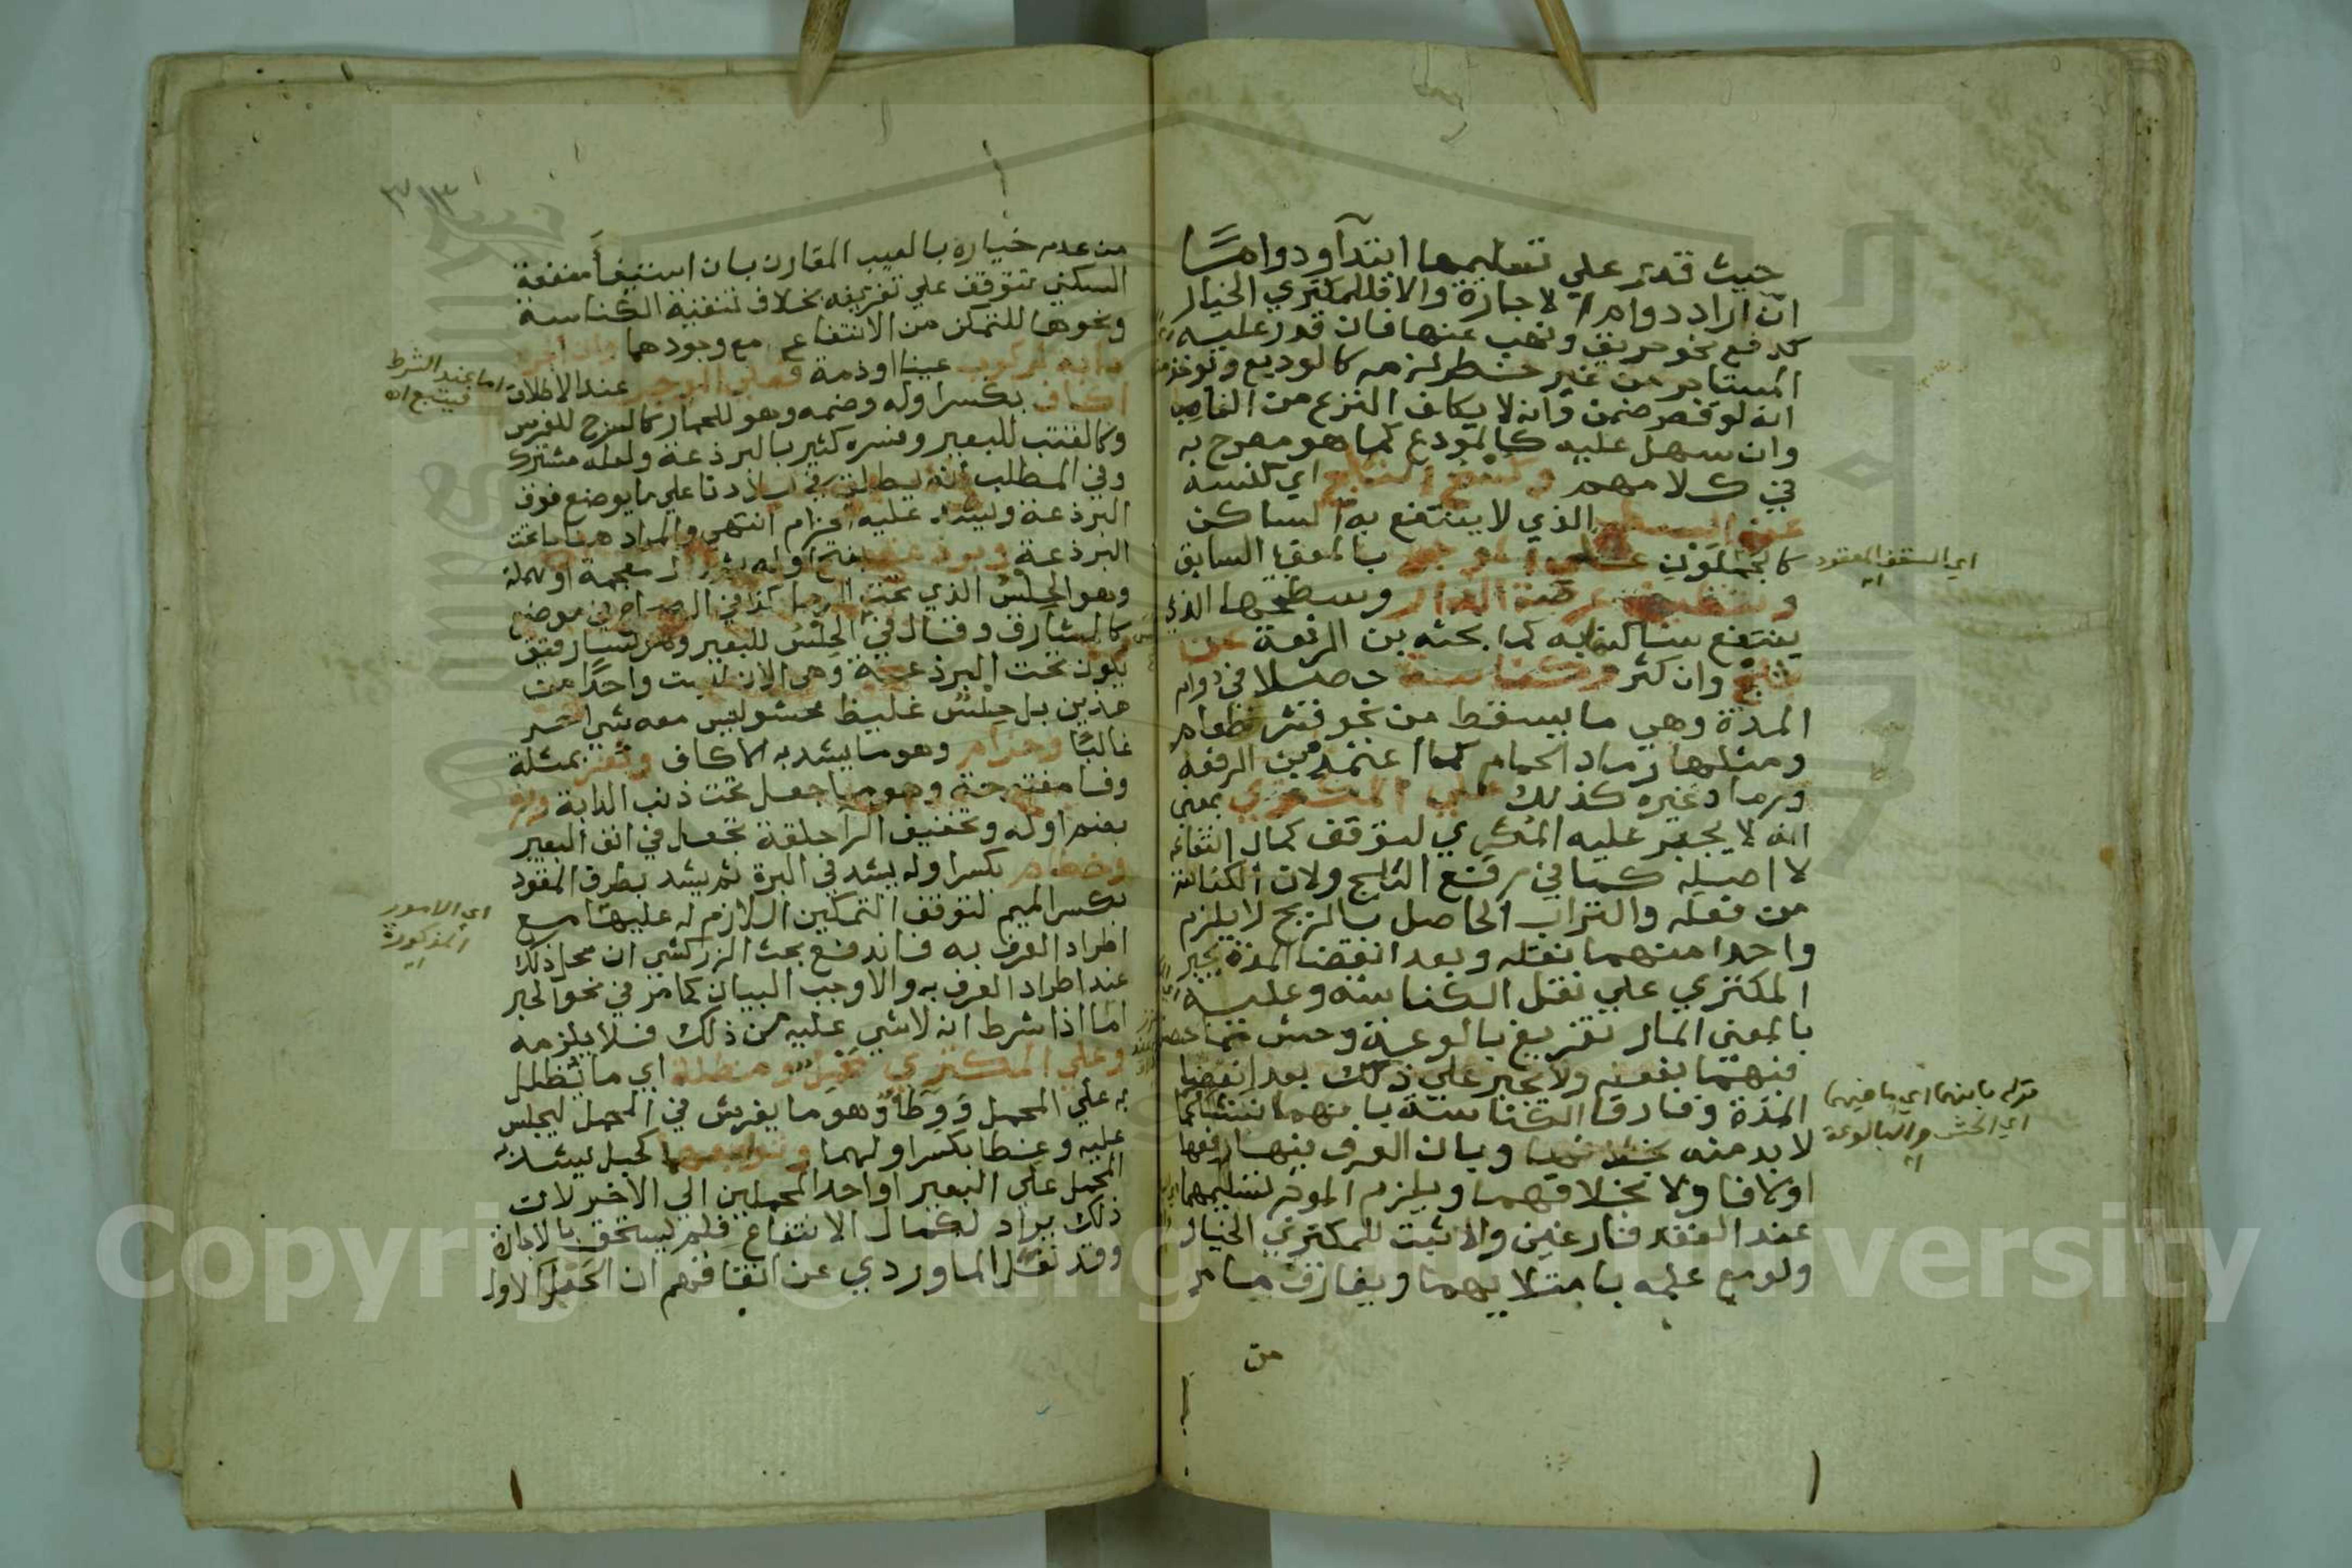 حيث قدر علي تسليمها ابتدآ ودواما
ان اراد دوام الاجارة والا فللمكتري الخيار
كدفع نحو حريق ونهب عنها فان قدر عليه
المستاجر من غير خطر لزمه كالوديع
انه لو قصر ضمن وانه لا يكلف النزع من الغاصب
وان سهل عليه كالمودع كما هو مصرح به
في كلامهم وكسح الثلج اي كنسه
عن السطح الذي لا ينتفع به الساكن
كالجملون علي الموجر بالمعني السابق
وتنظيف عرصة الدار وسطحها الذي
ينتفع ساكنها به كما بحثه بن الرفعة عن
ثلج وان كثر وكناسة حصلا في دوام
المدة وهي ما يسقط من نحو قشر وطعام
ومثلها رماد الحمام كما اعتمده بن الرفعة
ورماد غيره كذلك علي المكتري بمعني
انه لا يجبر عليه المكري لتوقف كمال انتفاعه
لا اصله كما في رفع الثلج ولان الكناسة
من فعله والتراب الحاصل بالريح لا يلزم
واحدا منهما نقله وبعد انقضا المدة يجبر
المكتري علي نقل الكناسة وعليه
بالمعني المار تفريغ بالوعة وحش مما حصل
فيهما بفعله ولا يجبر علي ذلك بعد انقضا
المدة وفارقا الكناسة بانهما نشئا عما
لا بد منه بخلافها وبان العرف فيها رفعها
اولا فاولا بخلافهما ويلزم الموجر تسليمهما
عند العقد فارغين والا ثبت للمكتري الخيار
ولو مع علمه بامتلايهما ويفارق ما مر
من
اي السقف المعقود
اه
قوله بانهما اي ما فيهما
اي الحش والبالوعة
اه
٣١٣
من عدم خياره بالعيب المقارن بان استيفأ منفعة
السكني تتوقف علي تفريغه بخلاف تنقية الكناسة
ونحوها للتمكن من الانتفاع مع وجودهما وان اجر
دابة لركوب عينا او ذمة فعلي الموجر عند الاطلاق
اكاف بكسر اوله وضمه وهو للحمار كالسرج للفرس
وكالقتب للبعير وفسره كثير بالبرذعة ولعله مشترك
وفي المطلب انه يطلق في بلادنا علي ما يوضع فوق
البرذعة ويشد عليه الحزام انتهي والمراد هنا ما تحت
البرذعة وبرذعة بفتح اوله ثم ذال معجمة او مهملة
وهو الحلس الذي تحت الرحل كذا في الصحاح في موضع
كالمشارق وقال في الحلس للبعير وهو كسا رقيق
يكون تحت البرذعة وهي الان ليست واحدا من
هذين بل حلس غليظ محشو ليس معه شي اخر
غالبا وحزام وهو ما يشد به الاكاف وثفر بمثلة
وفا مفتوحة وهو ما جعل تحت ذنب الدابة وبرة
بضم اوله وتخفيف الرآ حلقة تجعل في انف البعير
وخطام بكسر اوله يشد في البرة ثم يشد بطرف المقود
بكسر الميم لتوقف التمكين اللازم له عليها مع
اطراد العرف به فاندفع بحث الزركشي ان محل ذلك
عند اطراد العرف به والا وجب البيان كما مر في نحو الحبر
اما اذا شرط انه لا شي عليه من ذلك فلا يلزمه
وعلي المكتري محمل ومظلة اي ما يظلل
به علي المحمل ووطآ وهو ما يفرش في المحمل ليجلس
عليه وغطا بكسر اولهما وتوابعها كحبل يشد به
المحمل علي البعير او احد المحملين الي الاخر لان
ذلك يراد لكمال الانتفاع فلم يستحق بالاجارة
وقد نقل الماوردي عن اتفاقهم ان الحبل الاول
اما عند الشرط
فيتبع اه
اي الامور
المذكورة
Copyright © King Saud University